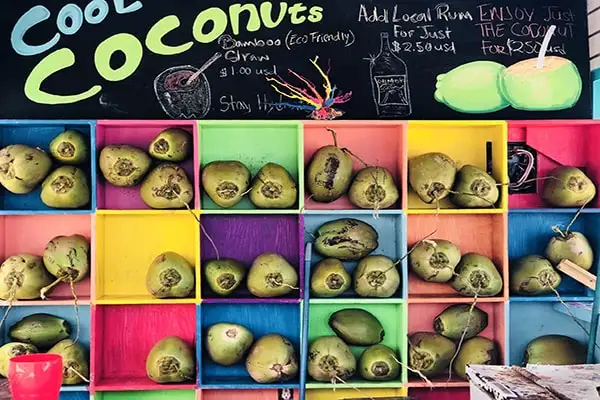 COOL
COCONUTS
Bamboo (Eco Friendly)
Straw
$1.00 USD
Stay Hy
Add Local Rum
For Just
$2.50 USD
ENJOY Just
THE COCONUT
FOR